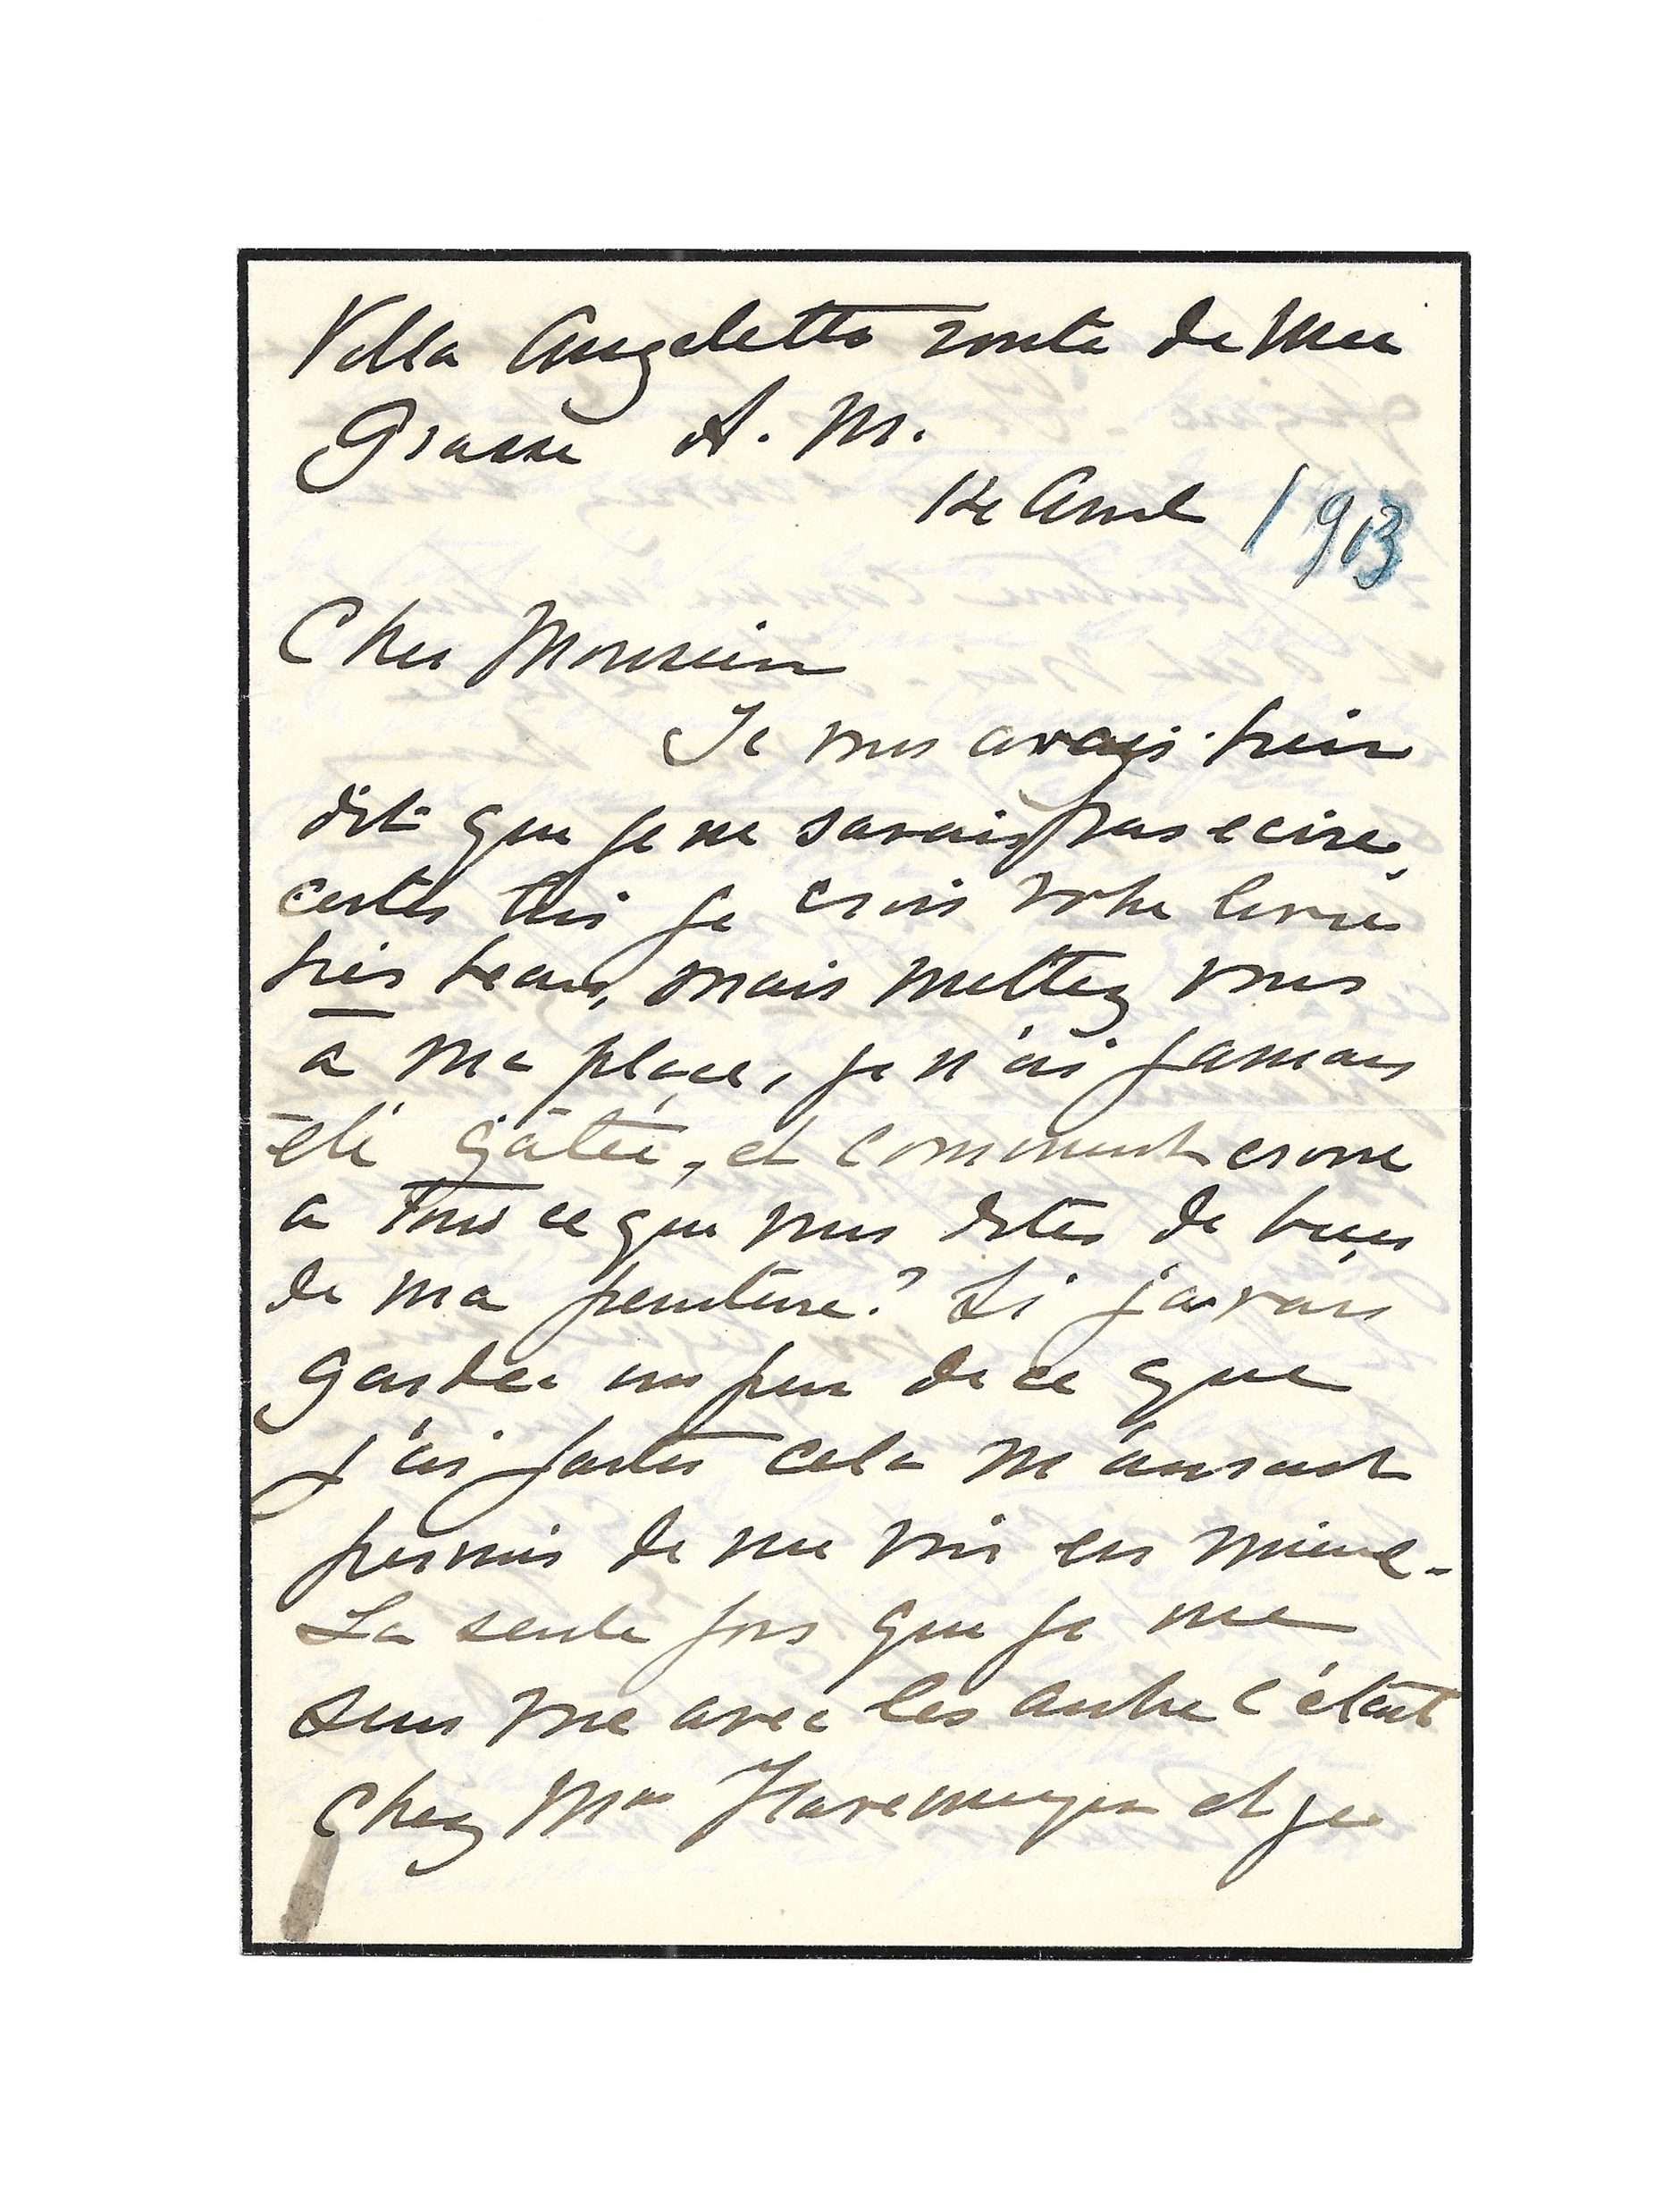 Villa Angeletto route de Nice
Grasse A. M.
12e Avril 1913
Cher Monsieur
Je vous avais bien
dit que je ne savais pas ecire,
certes oui je crois votre livre
très beau, mais mettez vous
à ma place, je n'ai jamais
été gâtée, et comment croire
a tous ce que vous dites de bien
de ma peinture? Si j'avais
garder un peu de ce que
j'ai faites cela m'aurait
permis de me voir en mieux.
La seule fois que je me
suis vue avec les autre c'était
chez Mme Havemeyer et je